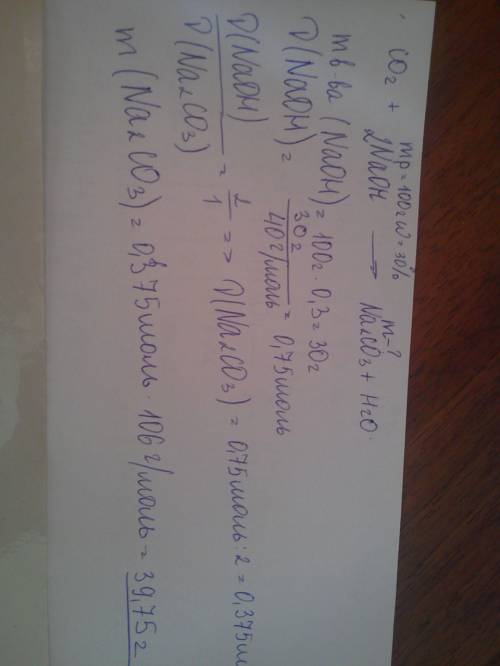 mр = 100г ω = 30% m - ?
CO2 + 2NaOH → Na2CO3 + H2O.
mв-ва (NaOH) = 100г · 0,3 = 30г
ν(NaOH) = 30г / 40г/моль = 0,75моль
ν(NaOH) / ν(Na2CO3) = 2/1 => ν(Na2CO3) = 0,75моль : 2 = 0,375м
m(Na2CO3) = 0,375моль · 106г/моль = 39,75г